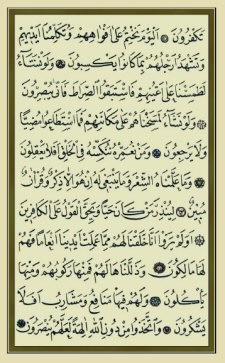 تَكْفُرُونَ ۞ الْيَوْمَ نَخْتِمُ عَلَىٰ أَفْوَاهِهِمْ وَتُكَلِّمُنَا أَيْدِيهِمْ
وَتَشْهَدُ أَرْجُلُهُمْ بِمَا كَانُوا يَكْسِبُونَ ۞ وَلَوْ نَشَاءُ
لَطَمَسْنَا عَلَىٰ أَعْيُنِهِمْ فَاسْتَبَقُوا الصِّرَاطَ فَأَنَّىٰ يُبْصِرُونَ
۞ وَلَوْ نَشَاءُ لَمَسَخْنَاهُمْ عَلَىٰ مَكَانَتِهِمْ فَمَا اسْتَطَاعُوا مُضِيًّا
وَلَا يَرْجِعُونَ ۞ وَمَنْ نُعَمِّرْهُ نُنَكِّسْهُ فِي الْخَلْقِ أَفَلَا يَعْقِلُونَ
۞ وَمَا عَلَّمْنَاهُ الشِّعْرَ وَمَا يَنْبَغِي لَهُ إِنْ هُوَ إِلَّا ذِكْرٌ وَقُرْآنٌ
مُبِينٌ ۞ لِيُنْذِرَ مَنْ كَانَ حَيًّا وَيَحِقَّ الْقَوْلُ عَلَى الْكَافِرِينَ
۞ أَوَلَمْ يَرَوْا أَنَّا خَلَقْنَا لَهُمْ مِمَّا عَمِلَتْ أَيْدِينَا أَنْعَامًا فَهُمْ
لَهَا مَالِكُونَ ۞ وَذَلَّلْنَاهَا لَهُمْ فَمِنْهَا رَكُوبُهُمْ وَمِنْهَا
يَأْكُلُونَ ۞ وَلَهُمْ فِيهَا مَنَافِعُ وَمَشَارِبُ أَفَلَا
يَشْكُرُونَ ۞ وَاتَّخَذُوا مِنْ دُونِ اللَّهِ آلِهَةً لَعَلَّهُمْ يُنْصَرُونَ